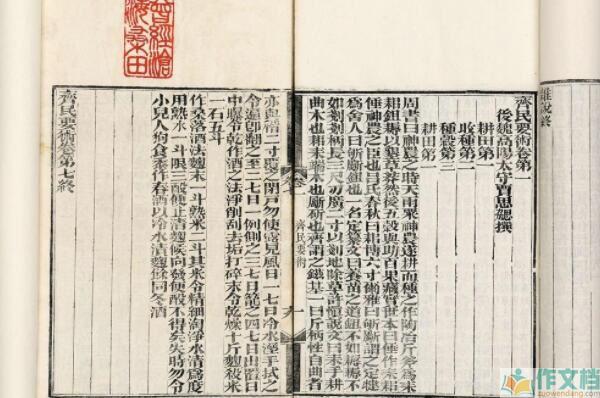 雜說終
齊民要術卷第一
後魏高陽太守賈思勰撰
耕田第一
收種第二
種穀第三
耕田第一
周書曰神農之時天雨粟神農遂耕而種之作陶冶斤斧爲耒
耜鉏耨以墾草莽然後五穀興助百果藏實世本曰倕作耒耜
倕神農之臣也呂氏春秋曰耜博六寸爾雅曰斪斸謂之定犍
爲舍人曰斪斸鉏也一名定纂文曰養苗之道鉏不如耨耨不
如剗剗柄長三尺刃廣二寸以剗地除草許慎說文曰耒手耕
曲木也耜耒端木也斸斫也齊謂之鎡基一曰斤柄性自曲者
曾經滄
海桑田
卷七
齊民要術
九
亦與槽二寸閉戶勿使露見風日一七日冷水溼手拭之
令遍即翻之至二七日一例側之三七日籠之四七日出置日
中曝令乾作酒之法淨削刮去垢打碎末令乾燥十斤麴殺米
一石五斗
作桑落酒法麴末一斗熟米二斗其米令精細淘淨水清爲度
用熟水一斗限三酘便止漬麴候向發便酘不得失時勿令
小兒人狗食黍作春酒以冷水漬麴餘同冬酒
齊民要術卷第七終
作文档
zuowendang.com